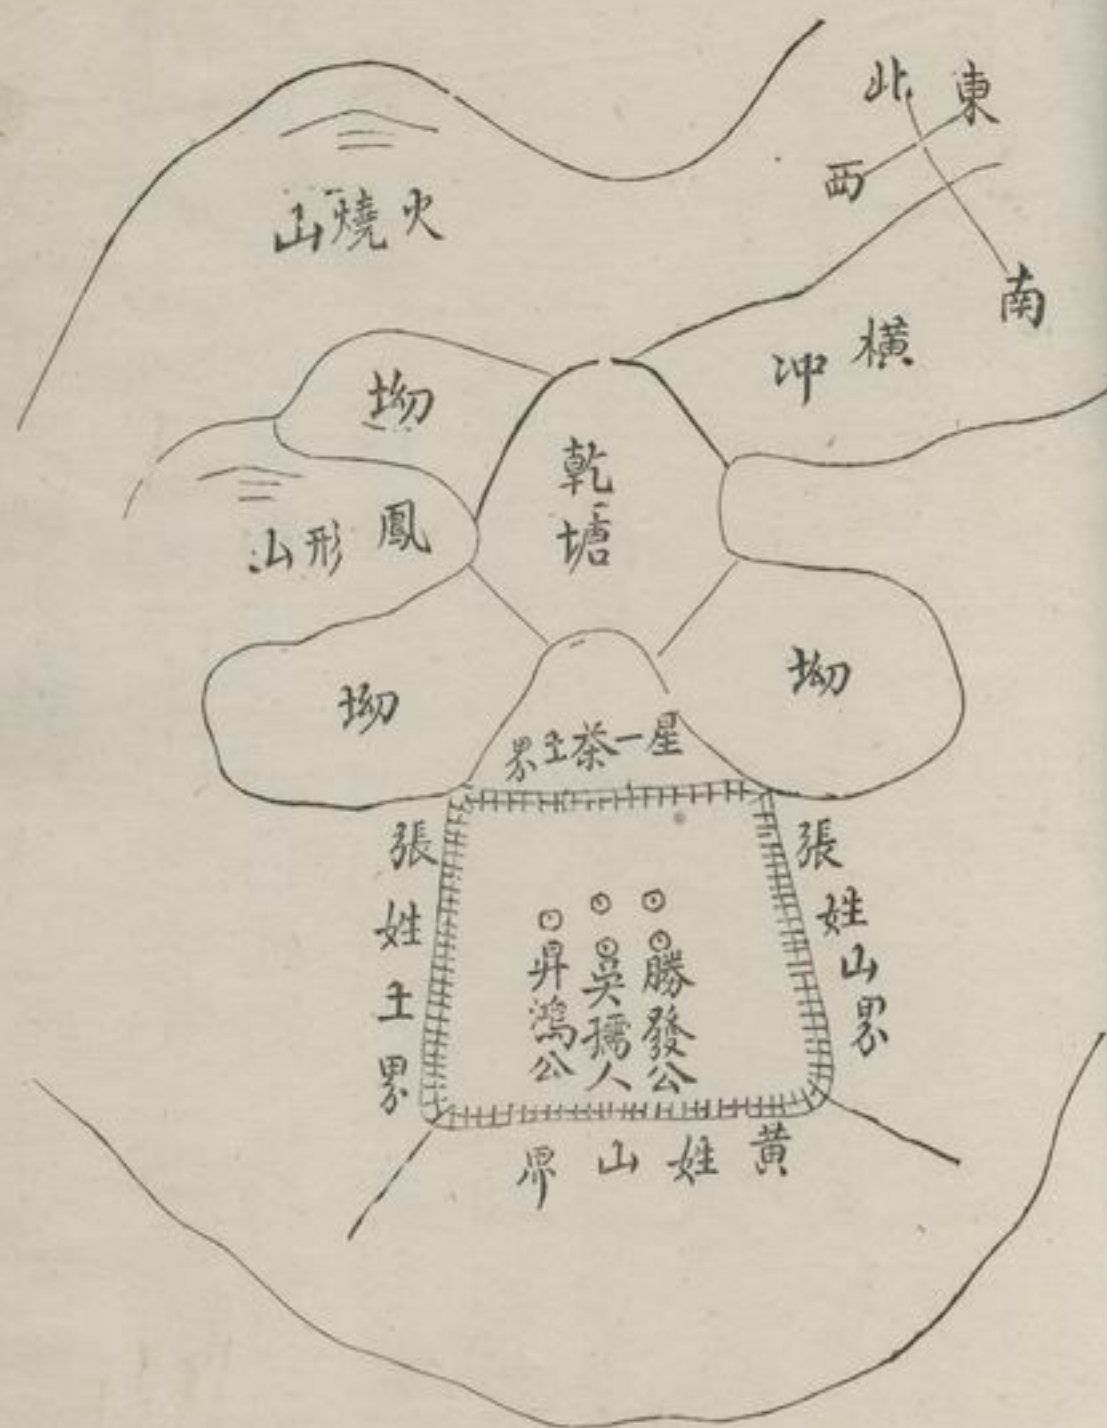 北
東
西
南
火燒山
橫冲
坳
乾塘
鳳形山
坳
坳
星一茶土界
張姓山界
張姓土界
勝發公
吳孺人
昇鴻公
黄姓山界